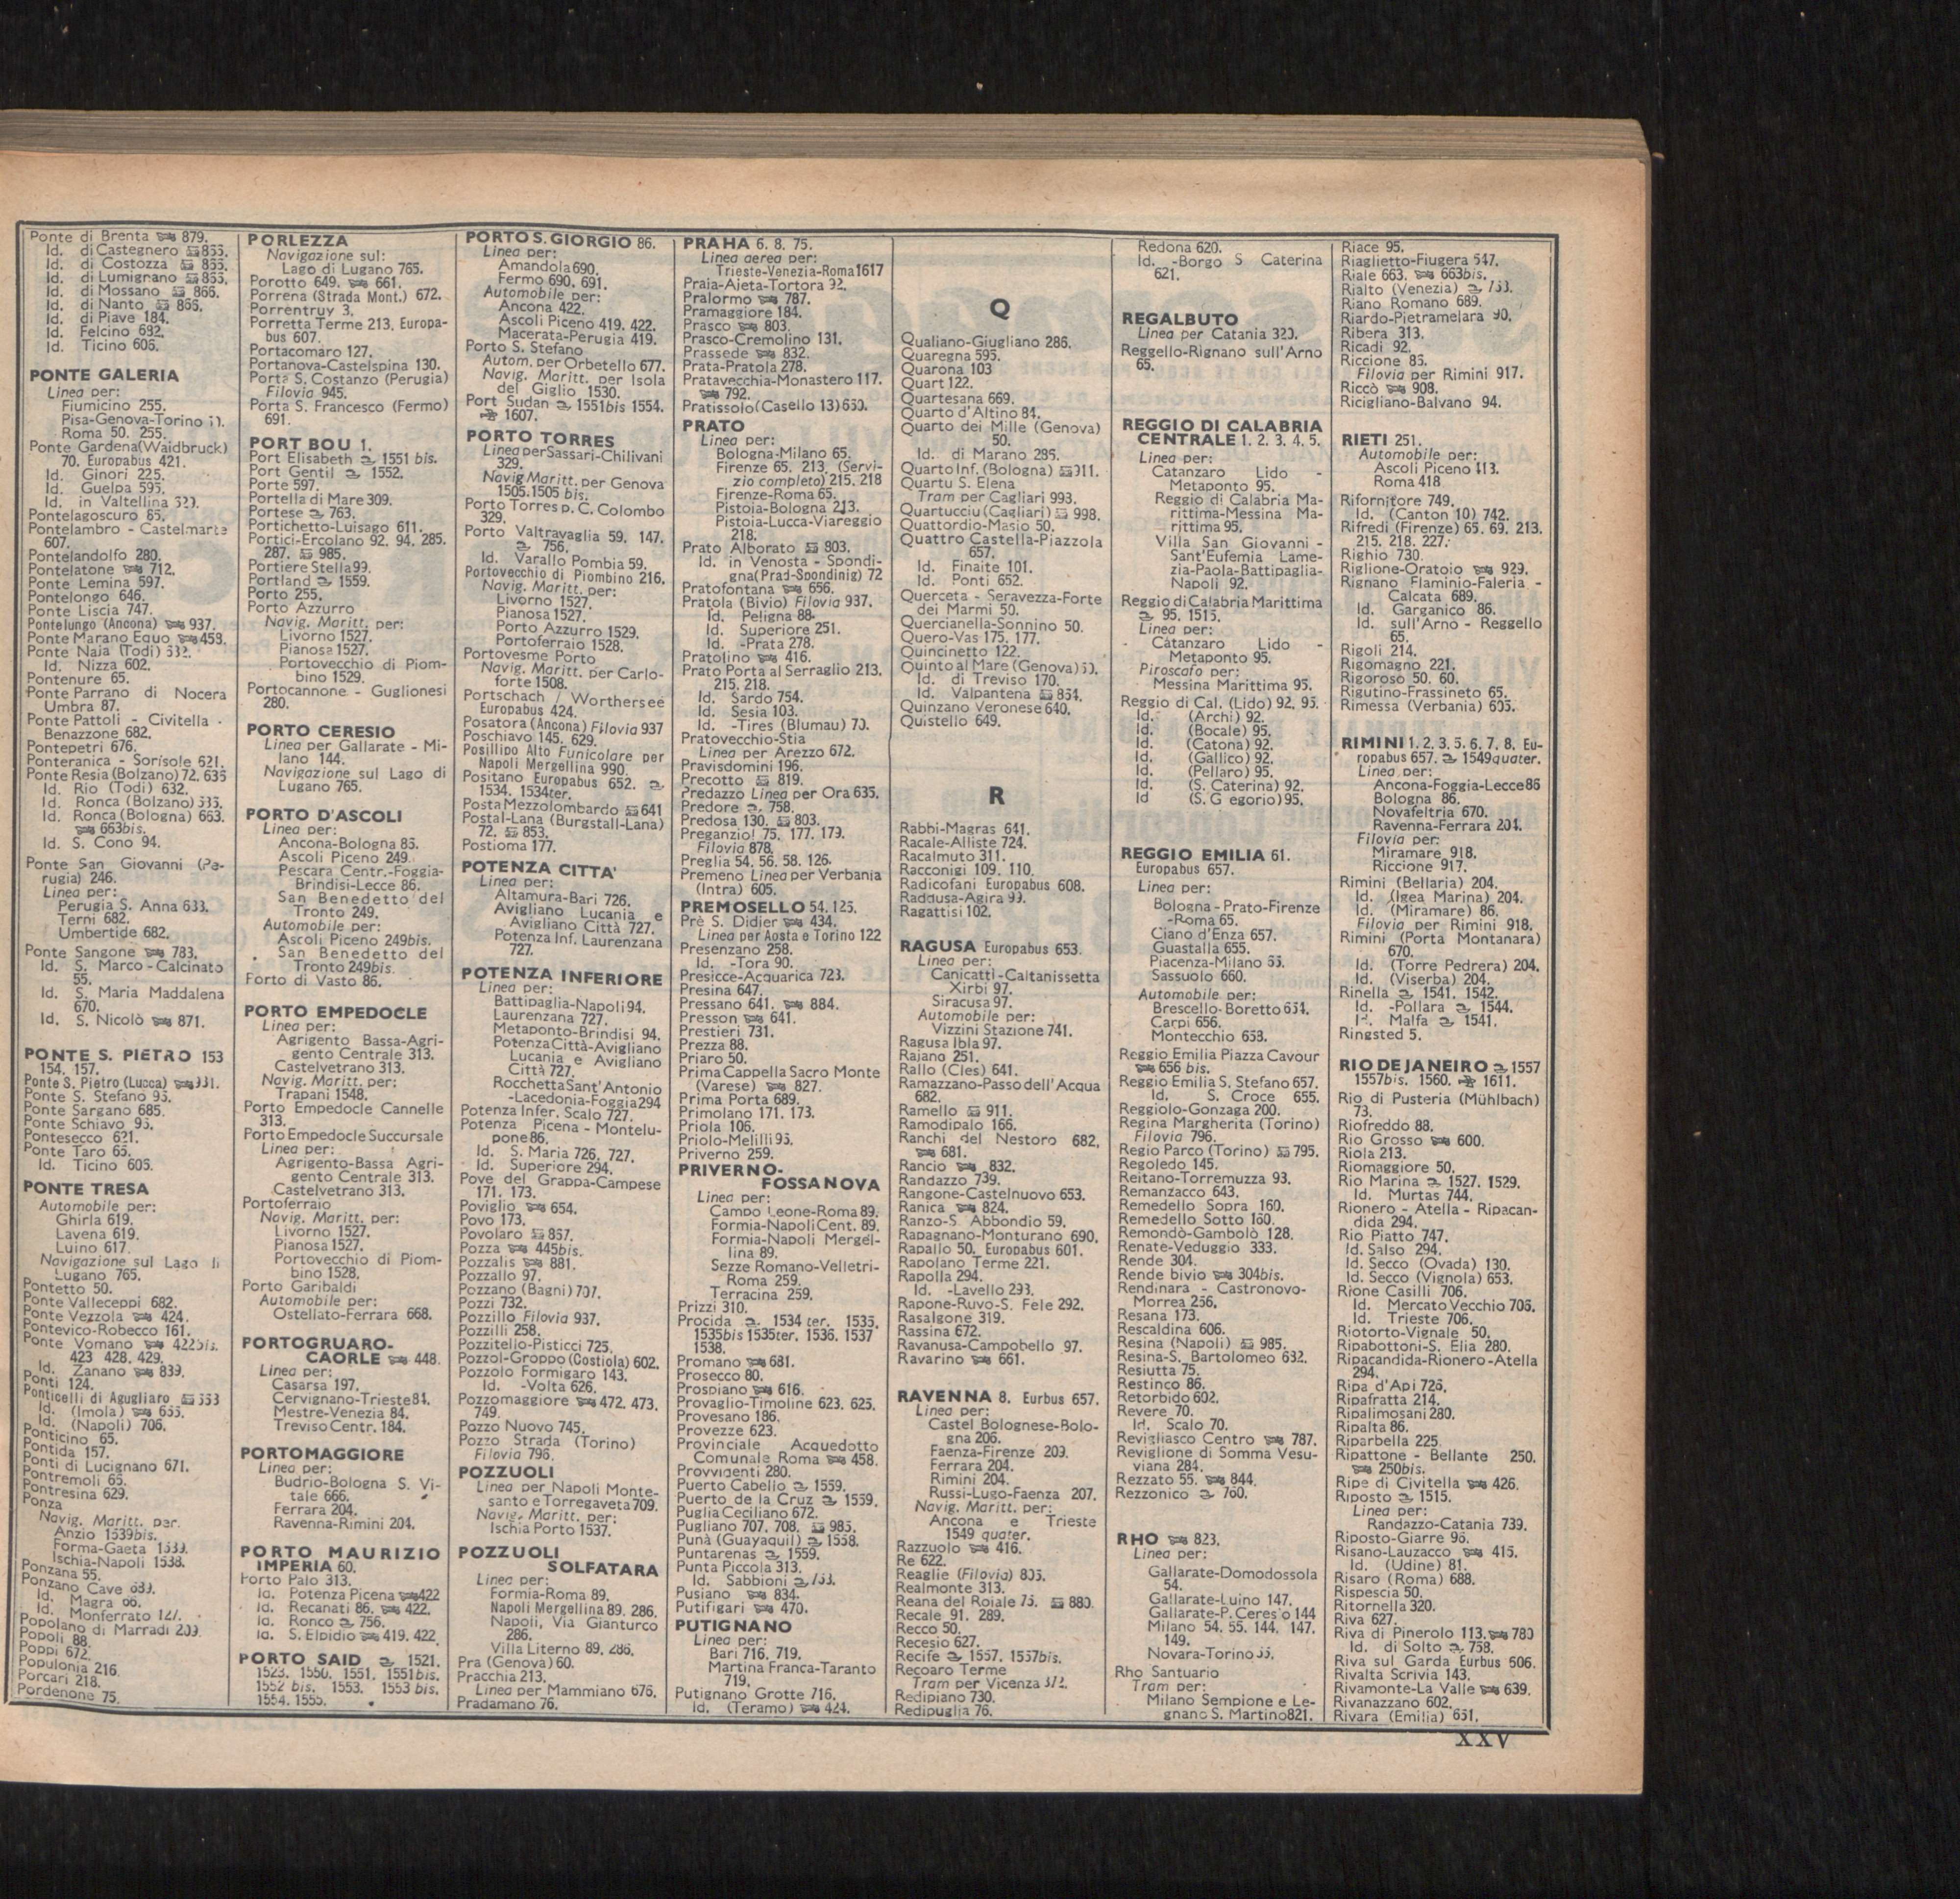 Ponte di Brenta 879.
Id. di Castegnero 866.
Id. di Costozza 866.
Id. di Lumignano 866.
Id. di Mossano 866.
Id. di Nanto 866.
Id. di Piave 184.
Id. Felcino 682.
Id. Ticino 606.
PONTE GALERIA
Linea per:
Fiumicino 255.
Pisa-Genova-Torino
Roma 50. 255.
Ponte Gardena(Waidbruck)
70. Europabus 421.
Id. Ginori 225.
Id. Guelpa 595.
Id. in Valtellina
Pontelagoscuro 65.
Pontelambro - Castelmarte
607.
Pontelandolfo 280.
Pontelatone 712.
Ponte Lemina 597.
Pontelongo 646.
Ponte Liscia 747.
Pontelungo (Ancona) 937.
Ponte Marano Equo 458.
Ponte Naia (Todi) 632.
Id. Nizza 602.
Pontenure 65.
Ponte Parrano di Nocera
Umbra 87.
Ponte Pattoli - Civitella -
Benazzone 682.
Pontepetri 676.
Ponteranica - Sorisole 621.
Ponte Resia (Bolzano) 72. 635
Id. Rio (Todi) 632.
Id. Ronca (Bolzano) 635.
Id. Ronca (Bologna) 663.
663bis.
Id. S. Cono 94.
Ponte San Giovanni (Pe-
rugia) 246.
Linea per:
Perugia S. Anna 633.
Terni 682.
Umbertide 682.
Ponte Sangone 783.
Id. S. Marco - Calcinato
55.
Id. S. Maria Maddalena
670.
Id. S. Nicolò 871.
PONTE S. PIETRO 153
154. 157.
Ponte S. Pietro (Lucca) 931.
Ponte S. Stefano 95.
Ponte Sargano 685.
Ponte Schiavo 95.
Pontesecco 621.
Ponte Taro 65.
Id. Ticino 606.
PONTE TRESA
Automobile per:
Ghirla 619.
Lavena 619.
Luino 617.
Navigazione sul Lago di
Lugano 765.
Pontetto 50.
Ponte Valleceppi 682.
Ponte Vezzola 424.
Pontevico-Robecco 161.
Ponte Vomano 422bis.
423 428. 429.
Id. Zanano 839.
Ponti 124.
Ponticelli di Agugliaro
Id. (Imola) 655.
Id. (Napoli) 706.
Ponticino 65.
Pontida 157.
Ponti di Lucignano 671.
Pontremoli 65.
Pontresina 629.
Ponza
Navig. Maritt. per:
Anzio 1539bis.
Forma-Gaeta 1539.
Ischia-Napoli 1538.
Ponzana 55.
Ponzano Cave 689.
Id. Magra 66.
Id. Monferrato 127.
Popolano di Marradi 209.
Popoli 88.
Poppi 672.
Populonia 216.
Porcari 218.
Pordenone 75.
PORLEZZA
Navigazione sul:
Lago di Lugano 765.
Porotto 649. 661.
Porrena (Strada Mont.) 672.
Porrentruy 3.
Porretta Terme 213. Europa-
bus 607.
Portacomaro 127.
Portanova-Castelspina 130.
Porta S. Costanzo (Perugia)
Filovia 945.
Porta S. Francesco (Fermo)
691.
PORT BOU 1.
Port Elisabeth 1551 bis.
Port Gentil 1552.
Porte 597.
Portella di Mare 309.
Portese 763.
Portichetto-Luisago 611.
Portici-Ercolano 92. 94. 285.
287. 985.
Portiere Stella 99.
Portland 1559.
Porto 255.
Porto Azzurro
Navig. Maritt. per:
Livorno 1527.
Pianosa 1527.
Portovecchio di Piom-
bino 1529.
Portocannone - Guglionesi
280.
PORTO CERESIO
Linea per Gallarate - Mi-
lano 144.
Navigazione sul Lago di
Lugano 765.
PORTO D'ASCOLI
Linea per:
Ancona-Bologna 86.
Ascoli Piceno 249.
Pescara Centr.-Foggia-
Brindisi-Lecce 86.
San Benedetto del
Tronto 249.
Automobile per:
Ascoli Piceno 249bis.
San Benedetto del
Tronto 249bis.
Porto di Vasto 86.
PORTO EMPEDOCLE
Linea per:
Agrigento Bassa-Agri-
gento Centrale 313.
Castelvetrano 313.
Navig. Maritt. per:
Trapani 1548.
Porto Empedocle Cannelle
313.
Porto Empedocle Succursale
Linea per:
Agrigento-Bassa Agri-
gento Centrale 313.
Castelvetrano 313.
Portoferraio
Navig. Maritt. per:
Livorno 1527.
Pianosa 1527.
Portovecchio di Piom-
bino 1528.
Porto Garibaldi
Automobile per:
Ostellato-Ferrara 668.
PORTOGRUARO-
CAORLE 448.
Linea per:
Casarsa 197.
Cervignano-Trieste 84.
Mestre-Venezia 84.
Treviso Centr. 184.
PORTOMAGGIORE
Linea per:
Budrio-Bologna S. Vi-
tale 666.
Ferrara 204.
Ravenna-Rimini 204.
PORTO MAURIZIO
IMPERIA 60.
Porto Palo 313.
Id. Potenza Picena 422
Id. Recanati 86. 422.
Id. Ronco 756.
Id. S. Elpidio 419. 422.
PORTO SAID 1521.
1523. 1550. 1551. 1551bis.
1552 bis. 1553. 1553 bis.
1554. 1555.
PORTO S. GIORGIO 86.
Linea per:
Amandola 690.
Fermo 690. 691.
Automobile per:
Ancona 422.
Ascoli Piceno 419. 422.
Macerata-Perugia 419.
Porto S. Stefano
Autom. per Orbetello 677.
Navig. Maritt. per Isola
del Giglio 1530.
Port Sudan 1551bis 1554.
1607.
PORTO TORRES
Linea per Sassari-Chilivani
329.
Navig Maritt. per Genova
1505.1505 bis.
Porto Torres p. C. Colombo
329.
Porto Valtravaglia 59. 147.
756.
Id. Varallo Pombia 59.
Portovecchio di Piombino 216.
Navig. Maritt. per:
Livorno 1527.
Pianosa 1527.
Porto Azzurro 1529.
Portoferraio 1528.
Portovesme Porto
Navig. Maritt. per Carlo-
forte 1508.
Portschach / Worthersee
Europabus 424.
Posatora (Ancona) Filovia 937
Poschiavo 145. 629.
Posillipo Alto Funicolare per
Napoli Mergellina 990.
Positano Europabus 652.
1534. 1534ter.
Posta Mezzolombardo 641
Postal-Lana (Burgstall-Lana)
72. 853.
Postioma 177.
POTENZA CITTA'
Linea per:
Altamura-Bari 726.
Avigliano Lucania e
Avigliano Città 727.
Potenza Inf. Laurenzana
727.
POTENZA INFERIORE
Linea per:
Battipaglia-Napoli 94.
Laurenzana 727.
Metaponto-Brindisi 94.
Potenza Città-Avigliano
Lucania e Avigliano
Città 727.
Rocchetta Sant'Antonio
-Lacedonia-Foggia 294
Potenza Infer. Scalo 727.
Potenza Picena - Montelu-
pone 86.
Id. S. Maria 726. 727.
Id. Superiore 294.
Pove del Grappa-Campese
171. 173.
Poviglio 654.
Povo 173.
Povolaro 867.
Pozza 445bis.
Pozzalis 881.
Pozzallo 97.
Pozzano (Bagni) 707.
Pozzi 732.
Pozzillo Filovia 937.
Pozzilli 258.
Pozzitello-Pisticci 725.
Pozzol-Groppo (Costiola) 602.
Pozzolo Formigaro 143.
Id. -Volta 626.
Pozzomaggiore 472. 473.
749.
Pozzo Nuovo 745.
Pozzo Strada (Torino)
Filovia 796.
POZZUOLI
Linea per Napoli Monte-
santo e Torregaveta 709.
Navig. Maritt. per:
Ischia Porto 1537.
POZZUOLI
SOLFATARA
Linea per:
Formia-Roma 89.
Napoli Mergellina 89. 286.
Napoli, Via Gianturco
286.
Villa Literno 89. 286.
Pra (Genova) 60.
Pracchia 213.
Linea per Mammiano 676.
Pradamano 76.
PRAHA 6. 8. 75.
Linea aerea per:
Trieste-Venezia-Roma 1617
Praia-Aieta-Tortora 92.
Pralormo 787.
Pramaggiore 184.
Prasco 803.
Prasco-Cremolino 131.
Prassede 832.
Prata-Pratola 278.
Pratavecchia-Monastero 117.
792.
Pratissolo (Casello 13) 660.
PRATO
Linea per:
Bologna-Milano 65.
Firenze 65. 213. (Servi-
zio completo) 215. 218
Firenze-Roma 65.
Pistoia-Bologna 213.
Pistoia-Lucca-Viareggio
218.
Prato Alborato 803.
Id. in Venosta - Spondi-
gna(Prad-Spondinig) 72
Pratofontana 656.
Pratola (Bivio) Filovia 937.
Id. Peligna 88.
Id. Superiore 251.
Id. -Prata 278.
Pratolino 416.
Prato Porta al Serraglio 213.
215. 218.
Id. Sardo 754.
Id. Sesia 103.
Id. -Tires (Blumau) 70.
Pratovecchio-Stia
Linea per Arezzo 672.
Pravisdomini 196.
Precotto 819.
Predazzo Linea per Ora 635.
Predore 758.
Predosa 130. 803.
Preganziol 75. 177. 179.
Filovia 878.
Preglia 54. 56. 58. 126.
Premeno Linea per Verbania
(Intra) 605.
PREMOSELLO 54. 125.
Prè S. Didier 434.
Linea per Aosta e Torino 122
Presenzano 258.
Id. -Tora 90.
Presicce-Acquarica 723.
Presina 647.
Pressano 641. 884.
Presson 641.
Prestieri 731.
Prezza 88.
Priaro 50.
Prima Cappella Sacro Monte
(Varese) 827.
Prima Porta 689.
Primolano 171. 173.
Priola 106.
Priolo-Melilli 95.
Priverno 259.
PRIVERNO-
FOSSANOVA
Linea per:
Campo Leone-Roma 89.
Formia-Napoli Cent. 89.
Formia-Napoli Mergel-
lina 89.
Sezze Romano-Velletri-
Roma 259.
Terracina 259.
Prizzi 310.
Procida 1534 ter. 1535.
1535bis 1535ter. 1536. 1537
1538.
Promano 681.
Prosecco 80.
Prospiano 616.
Provaglio-Timoline 623. 625.
Provesano 186.
Provezze 623.
Provinciale Acquedotto
Comunale Roma 458.
Provvidenti 280.
Puerto Cabello 1559.
Puerto de la Cruz 1559.
Puglia Ceciliano 672.
Pugliano 707. 708. 985.
Punà (Guayaquil) 1558.
Puntarenas 1559.
Punta Piccola 313.
Id. Sabbioni
Pusiano 834.
Putifigari 470.
PUTIGNANO
Linea per:
Bari 716. 719.
Martina Franca-Taranto
719.
Putignano Grotte 716.
Id. (Teramo) 424.
Q
Qualiano-Giugliano 286.
Quaregna 595.
Quarona 103
Quart 122.
Quartesana 669.
Quarto d'Altino 84.
Quarto dei Mille (Genova)
50.
Id. di Marano 286.
Quarto Inf. (Bologna) 911.
Quartu S. Elena
Tram per Cagliari 993.
Quartucciu (Cagliari) 998.
Quattordio-Masio 50.
Quattro Castella-Piazzola
657.
Id. Finaite 101.
Id. Ponti 652.
Querceta - Seravezza-Forte
dei Marmi 50.
Quercianella-Sonnino 50.
Quero-Vas 175. 177.
Quincinetto 122.
Quinto al Mare (Genova) 50.
Id. di Treviso 170.
Id. Valpantena 854.
Quinzano Veronese 640.
Quistello 649.
R
Rabbi-Magras 641.
Racale-Alliste 724.
Racalmuto 311.
Racconigi 109. 110.
Radicofani Europabus 608.
Raddusa-Agira 99.
Ragattisi 102.
RAGUSA Europabus 653.
Linea per:
Canicattì-Caltanissetta
Xirbi 97.
Siracusa 97.
Automobile per:
Vizzini Stazione 741.
Ragusa Ibla 97.
Raiano 251.
Rallo (Cles) 641.
Ramazzano-Passo dell'Acqua
682.
Ramello 911.
Ramodipalo 166.
Ranchi del Nestoro 682.
681.
Rancio 832.
Randazzo 739.
Rangone-Castelnuovo 653.
Ranica 824.
Ranzo-S. Abbondio 59.
Rapagnano-Monturano 690.
Rapallo 50. Europabus 601.
Rapolano Terme 221.
Rapolla 294.
Id. -Lavello 293.
Rapone-Ruvo-S. Fele 292.
Rasalgone 319.
Rassina 672.
Ravanusa-Campobello 97.
Ravarino 661.
RAVENNA 8. Eurbus 657.
Linea per:
Castel Bolognese-Bolo-
gna 206.
Faenza-Firenze 209.
Ferrara 204.
Rimini 204.
Russi-Lugo-Faenza 207.
Navig. Maritt. per:
Ancona e Trieste
1549 quater.
Razzuolo 416.
Re 622.
Reaglie (Filovia) 805.
Realmonte 313.
Reana del Roiale 75. 880.
Recale 91. 289.
Recco 50.
Recesio 627.
Recife 1557. 1557bis.
Recoaro Terme
Tram per Vicenza 872.
Redipiano 730.
Redipuglia 76.
Redona 620.
Id. -Borgo S Caterina
621.
REGALBUTO
Linea per Catania 320.
Reggello-Rignano sull'Arno
65.
REGGIO DI CALABRIA
CENTRALE 1. 2. 3. 4. 5.
Linea per:
Catanzaro Lido -
Metaponto 95.
Reggio di Calabria Ma-
rittima-Messina Ma-
rittima 95.
Villa San Giovanni -
Sant'Eufemia Lame-
zia-Paola-Battipaglia-
Napoli 92.
Reggio di Calabria Marittima
95. 1515.
Linea per:
Catanzaro Lido -
Metaponto 95.
Piroscafo per:
Messina Marittima 95.
Reggio di Cal. (Lido) 92. 95.
Id. (Archi) 92.
Id. (Bocale) 95.
Id. (Catona) 92.
Id. (Gallico) 92.
Id. (Pellaro) 95.
Id. (S. Caterina) 92.
Id (S. G egorio) 95.
REGGIO EMILIA 61.
Europabus 657.
Linea per:
Bologna - Prato-Firenze
-Roma 65.
Ciano d'Enza 657.
Guastalla 655.
Piacenza-Milano 65.
Sassuolo 660.
Automobile per:
Brescello-Boretto 654.
Carpi 656.
Montecchio 658.
Reggio Emilia Piazza Cavour
656 bis.
Reggio Emilia S. Stefano 657.
Id. S. Croce 655.
Reggiolo-Gonzaga 200.
Regina Margherita (Torino)
Filovia 796.
Regio Parco (Torino) 795.
Regoledo 145.
Reitano-Torremuzza 93.
Remanzacco 643.
Remedello Sopra 160.
Remedello Sotto 160.
Remondò-Gambolò 128.
Renate-Veduggio 333.
Rende 304.
Rende bivio 304bis.
Rendinara - Castronovo-
Morrea 256.
Resana 173.
Rescaldina 606.
Resina (Napoli) 985.
Resina-S. Bartolomeo 632.
Resiutta 75.
Restinco 86.
Retorbido 602.
Revere 70.
Id. Scalo 70.
Revigliasco Centro 787.
Reviglione di Somma Vesu-
viana 284.
Rezzato 55. 844.
Rezzonico 760.
RHO 823.
Linea per:
Gallarate-Domodossola
54.
Gallarate-Luino 147.
Gallarate-P. Ceresio 144
Milano 54. 55. 144. 147.
149.
Novara-Torino 55.
Rho Santuario
Tram per:
Milano Sempione e Le-
gnano S. Martino 821.
Riace 95.
Riaglietto-Fiugera 547.
Riale 663. 663bis.
Rialto (Venezia)
Riano Romano 689.
Riardo-Pietramelara 90.
Ribera 313.
Ricadi 92.
Riccione 86.
Filovia per Rimini 917.
Riccò 908.
Ricigliano-Balvano 94.
RIETI 251.
Automobile per:
Ascoli Piceno 413.
Roma 418
Rifornitore 749.
Id. (Canton 10) 742.
Rifredi (Firenze) 65. 69. 213.
215. 218. 227.
Righio 730.
Riglione-Oratoio 929.
Rignano Flaminio-Faleria -
Calcata 689.
Id. Garganico 86.
Id. sull'Arno - Reggello
65.
Rigoli 214.
Rigomagno 221.
Rigoroso 50. 60.
Rigutino-Frassineto 65.
Rimessa (Verbania) 605.
RIMINI 1. 2. 3. 5. 6. 7. 8. Eu-
ropabus 657. 1549quater.
Linea per:
Ancona-Foggia-Lecce 86
Bologna 86.
Novafeltria 670.
Ravenna-Ferrara 204.
Filovia per:
Miramare 918.
Riccione 917.
Rimini (Bellaria) 204.
Id. (Igea Marina) 204.
Id. (Miramare) 86.
Filovia per Rimini 918.
Rimini (Porta Montanara)
670.
Id. (Torre Pedrera) 204.
Id. (Viserba) 204.
Rinella 1541. 1542.
Id. -Pollara 1544.
Id. Malfa 1541.
Ringsted 5.
RIO DE JANEIRO 1557
1557bis. 1560. 1611.
Rio di Pusteria (Mühlbach)
73.
Riofreddo 88.
Rio Grosso 600.
Riola 213.
Riomaggiore 50.
Rio Marina 1527. 1529.
Id. Murtas 744.
Rionero - Atella - Ripacan-
dida 294.
Rio Piatto 747.
Id. Salso 294.
Id. Secco (Ovada) 130.
Id. Secco (Vignola) 653.
Rione Casilli 706.
Id. Mercato Vecchio 706.
Id. Trieste 706.
Riotorto-Vignale 50.
Ripabottoni-S. Elia 280.
Ripacandida-Rionero-Atella
294.
Ripa d'Api 726.
Ripafratta 214.
Ripalimosani 280.
Ripalta 86.
Riparbella 225.
Ripattone - Bellante 250.
250bis.
Ripe di Civitella 426.
Riposto 1515.
Linea per:
Randazzo-Catania 739.
Riposto-Giarre 95.
Risano-Lauzacco 415.
Id. (Udine) 81.
Risaro (Roma) 688.
Rispescia 50.
Ritornella 320.
Riva 627.
Riva di Pinerolo 113. 780
Id. di Solto 758.
Riva sul Garda Eurbus 606.
Rivalta Scrivia 143.
Rivamonte-La Valle 639.
Rivanazzano 602.
Rivara (Emilia) 651.
XXV